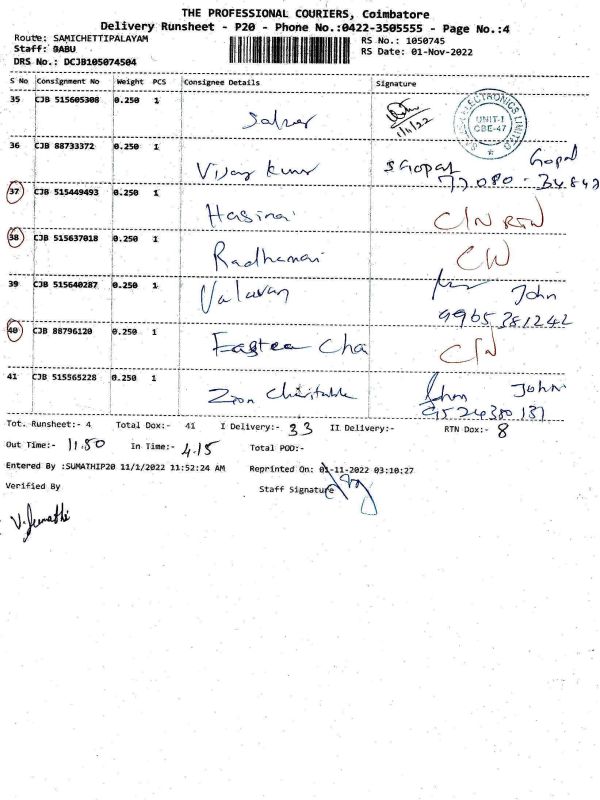 THE PROFESSIONAL COURIERS, Coimbatore
Delivery Runsheet - P20 - Phone No.:0422-3505555 - Page No.:4
Route: SAMICHETTIPALAYAM RS No.: 1050745
Staff: BABU RS Date: 01-Nov-2022
DRS No.: DCJB105074504
S No Consignment No Weight PCS Consignee Details Signature
35 CJB 515605308 0.250 1 1/11/22
ELECTRONICS LIMITED
UNIT-I
CBE-47
36 CJB 88733372 0.250 1 Vijay Kumar S Gopal Gopal
37 CJB 515449493 0.250 1 Hasina C/N RTN
38 CJB 515637018 0.250 1 Radhamani C/N
39 CJB 515640287 0.250 1 Valavan John
9965381242
40 CJB 88796120 0.250 1 Eastea Cha C/N
41 CJB 515565228 0.250 1 Zion Charitable John John
9524380131
Tot. Runsheet:- 4 Total Dox:- 41 I Delivery:- 33 II Delivery:- RTN Dox:- 8
Out Time:- 11.50 In Time:- 4.15 Total POD:-
Entered By :SUMATHIP20 11/1/2022 11:52:24 AM Reprinted On: 01-11-2022 03:10:27
Verified By Staff Signature
V. Sumathi